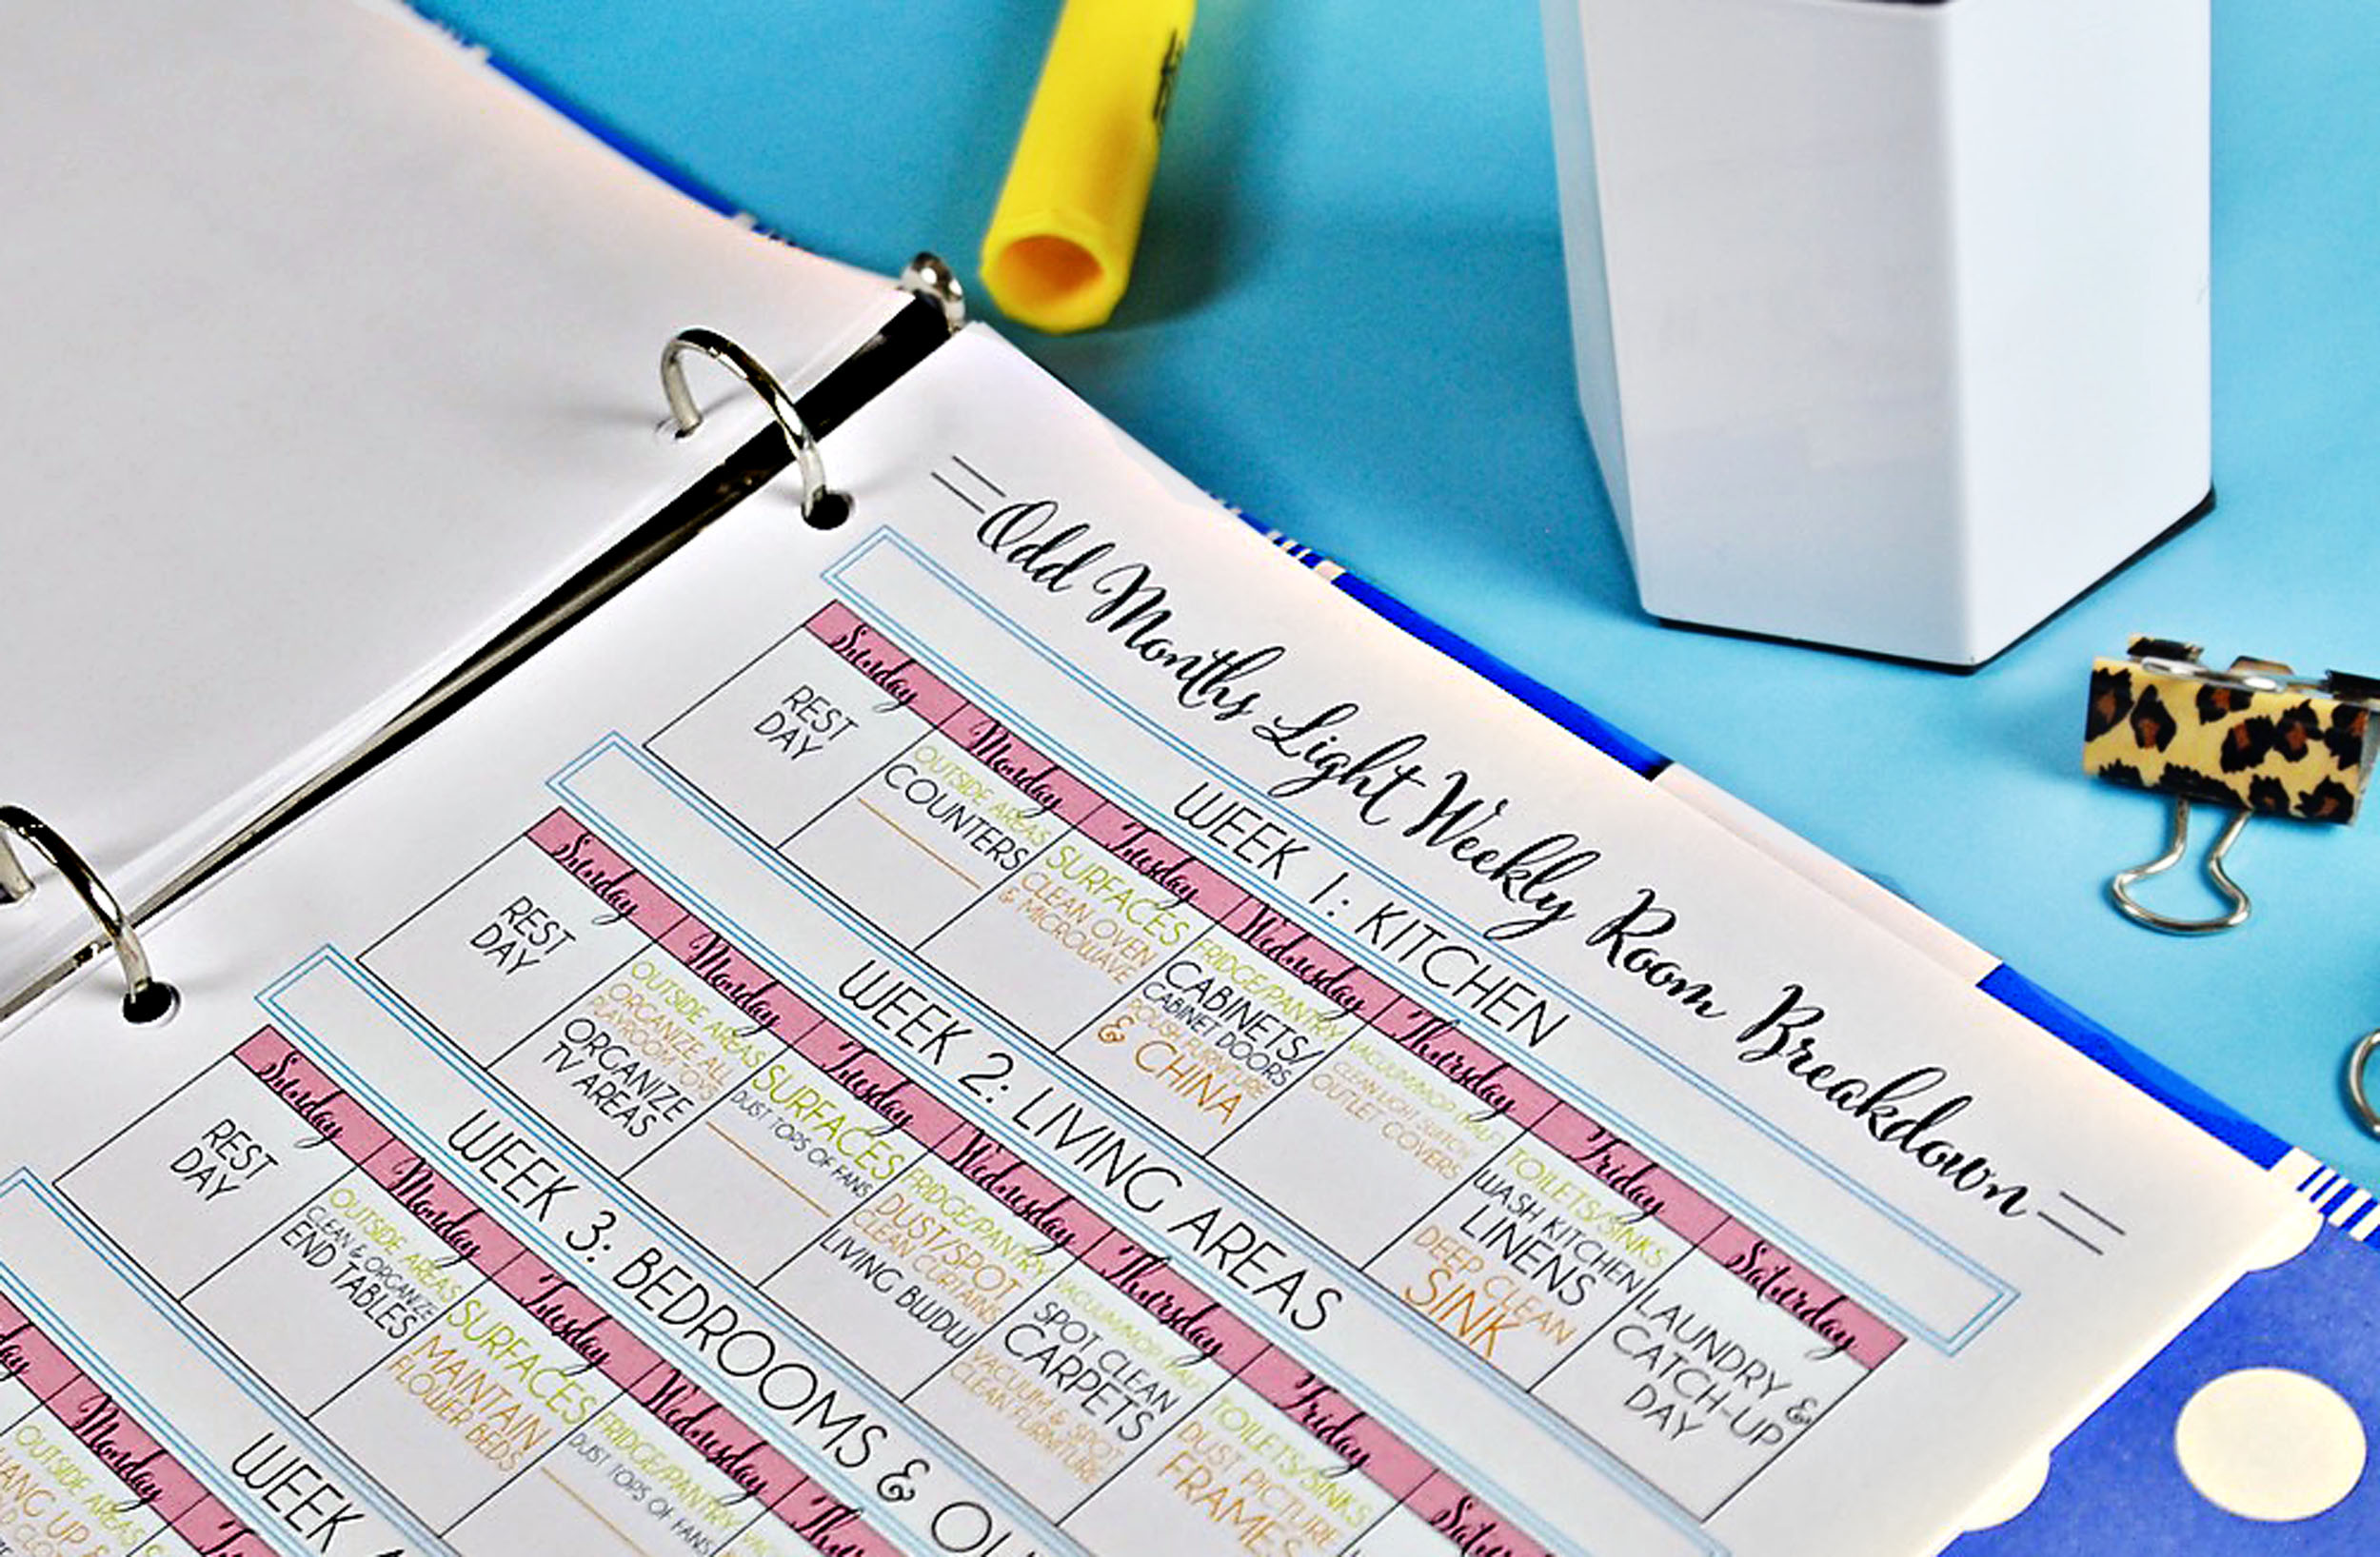 Odd Months Light Weekly Room Breakdown
WEEK 1: KITCHEN
Sunday Monday Tuesday Wednesday Thursday Friday Saturday
REST
DAY
OUTSIDE AREAS
COUNTERS
SURFACES
CLEAN OVEN
& MICROWAVE
FRIDGE/PANTRY
CABINETS/
CABINET DOORS
POLISH FURNITURE
& CHINA
VACUUM/MOP
CLEAN LIGHT SWITCH
OUTLET COVERS
TOILETS/SINKS
WASH KITCHEN
LINENS
DEEP CLEAN
SINK
LAUNDRY &
CATCH-UP
DAY
WEEK 2: LIVING AREAS
Sunday Monday Tuesday Wednesday Thursday Friday
REST
DAY
OUTSIDE AREAS
ORGANIZE ALL
PLAYROOM TOYS
ORGANIZE
TV AREAS
SURFACES
DUST TOPS OF FANS
FRIDGE/PANTRY
DUST/SPOT
CLEAN CURTAINS
LIVING
VACUUM/MOP
SPOT CLEAN
CARPETS
VACUUM & SPOT
CLEAN FURNITURE
TOILETS/SINKS
DUST PICTURE
FRAMES
WEEK 3: BEDROOMS &
Sunday Monday Tuesday Wednesday
REST
DAY
OUTSIDE AREAS
CLEAN & ORGANIZE
END TABLES
SURFACES
MAINTAIN
FLOWER BEDS
FRIDGE/PANTRY
DUST TOPS OF FANS
WEEK
Monday
OUTSIDE AREAS